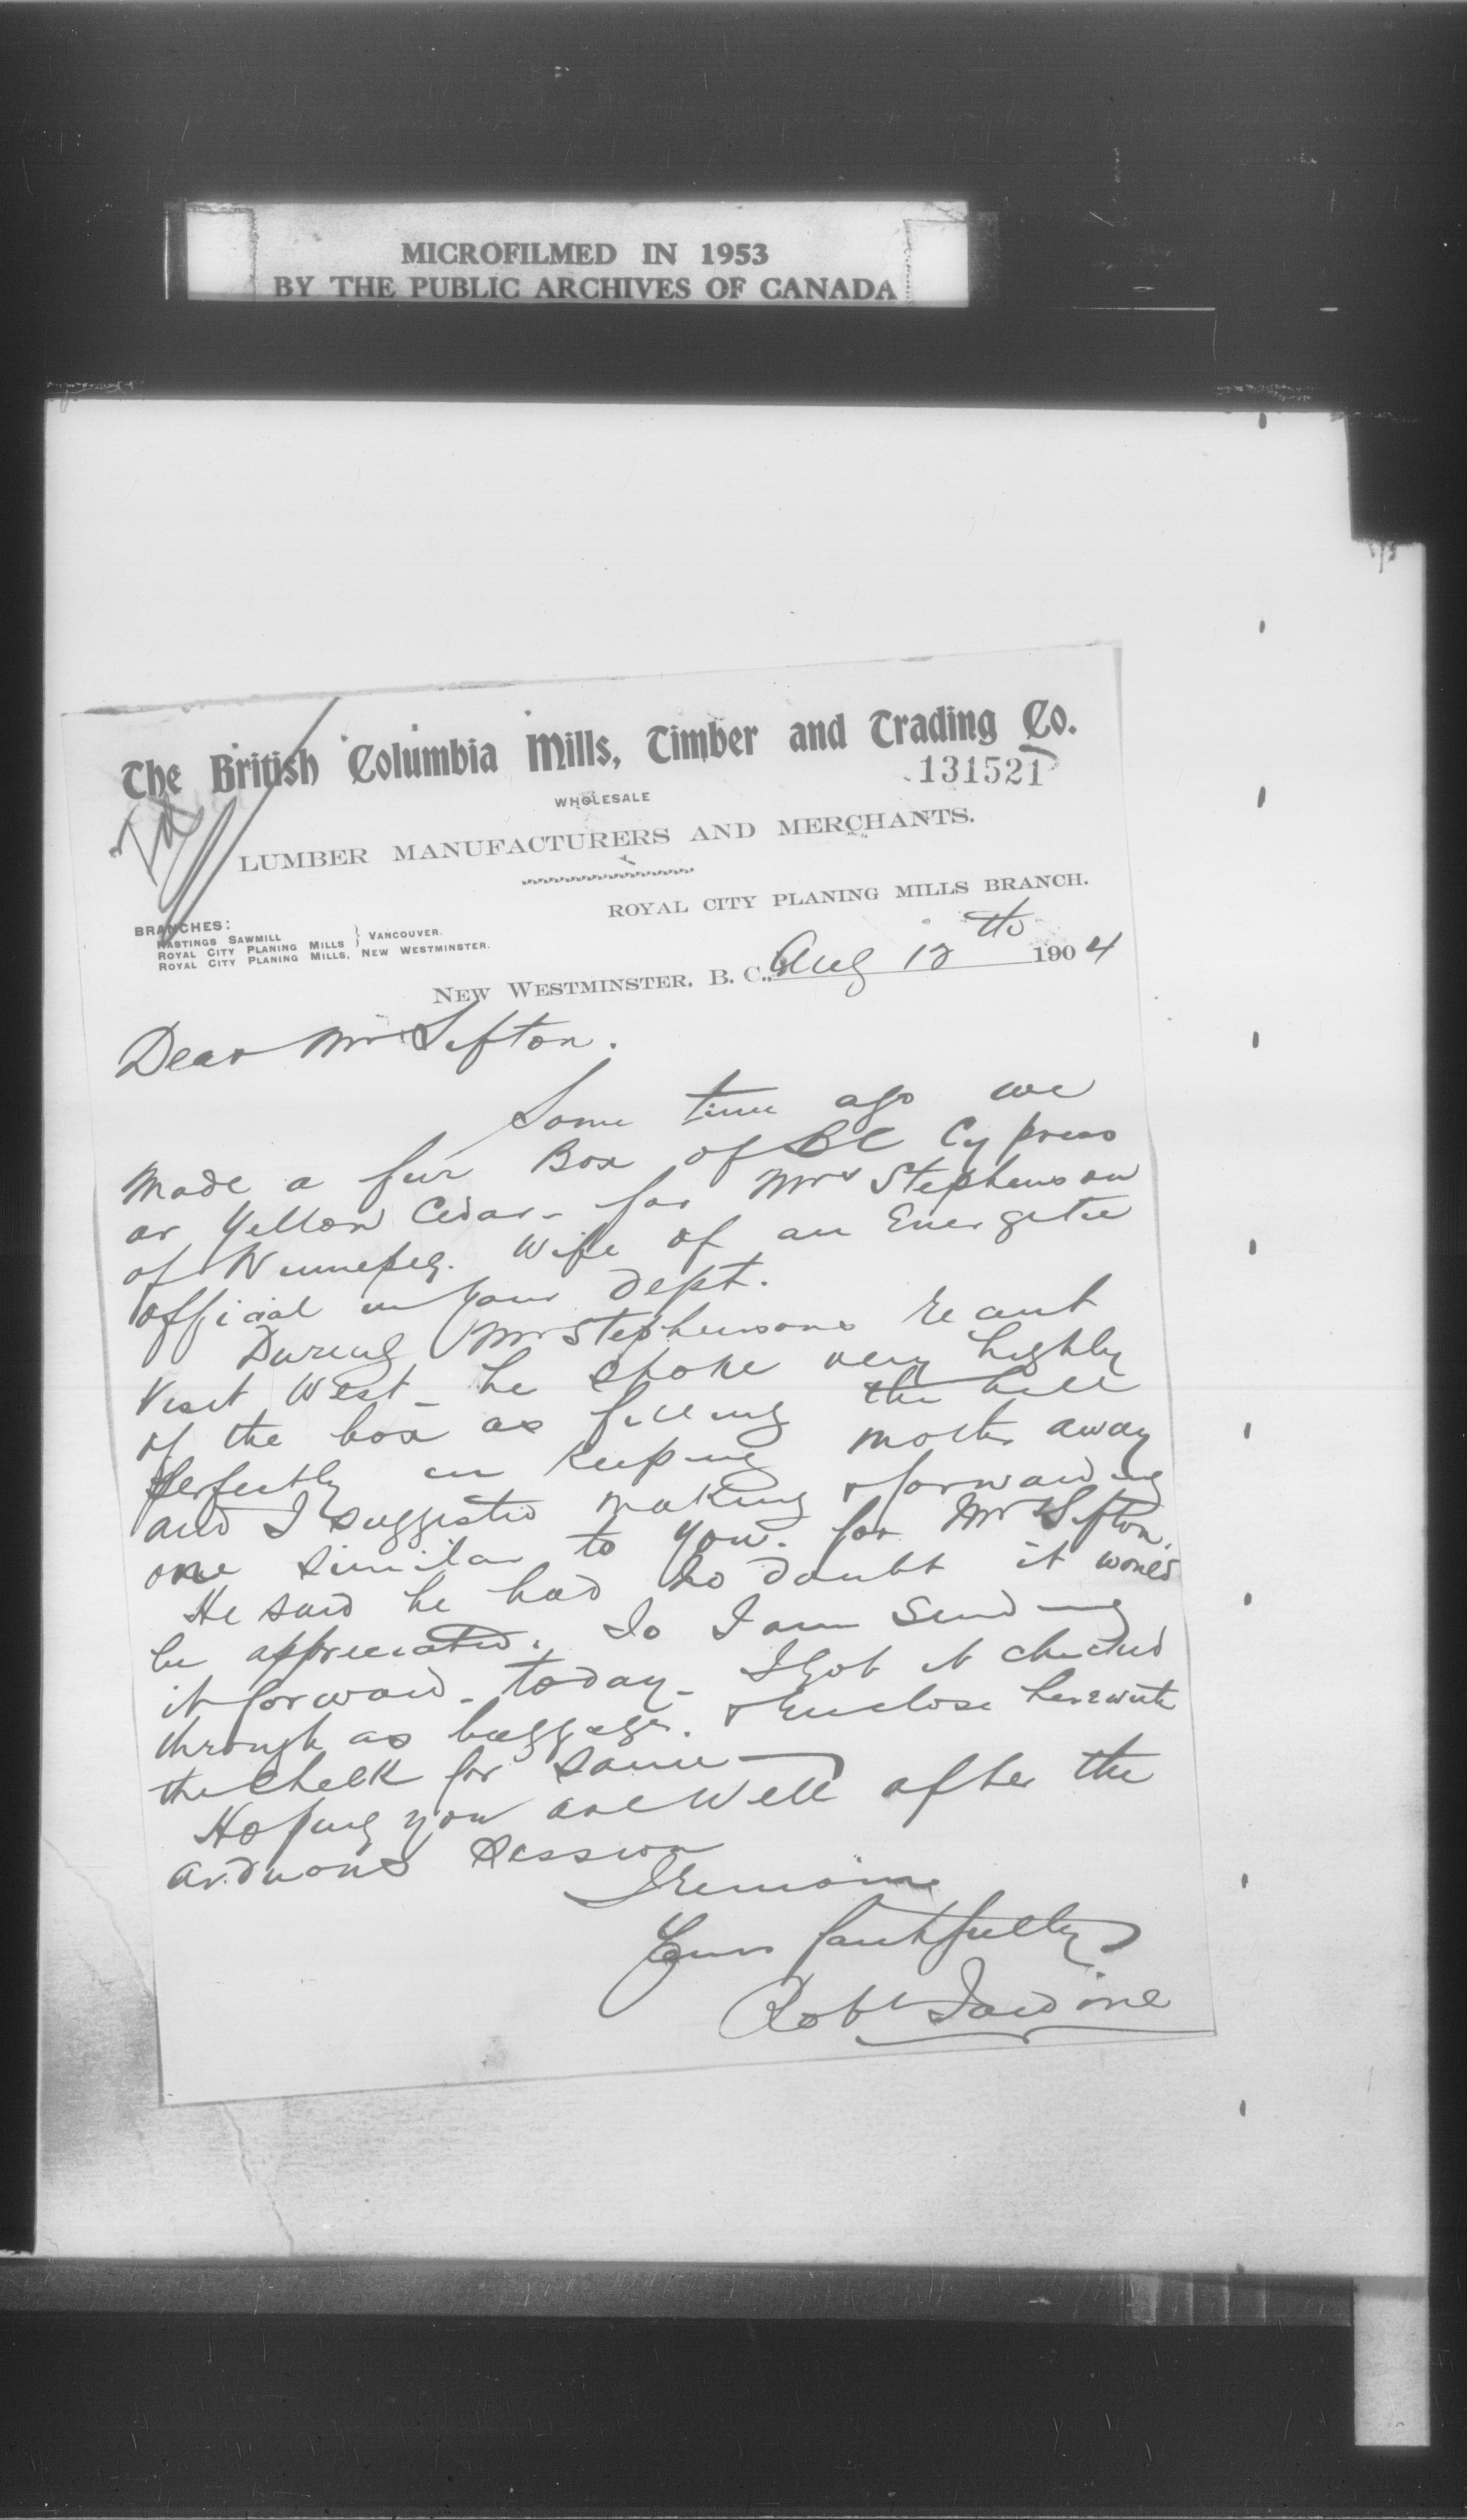 MICROFILMED IN 1953
BY THE PUBLIC ARCHIVES OF CANADA
The British Columbia Mills, Timber and Trading Co.
131521
WHOLESALE
LUMBER MANUFACTURERS AND MERCHANTS.
ROYAL CITY PLANING MILLS BRANCH.
BRANCHES:
HASTINGS SAWMILL
ROYAL CITY PLANING MILLS } VANCOUVER.
ROYAL CITY PLANING MILLS, NEW WESTMINSTER.
NEW WESTMINSTER, B. C., Aug 12th 1904
Dear Mr Sifton.
Some time ago we
made a fur Box of BC Cypress
or Yellow Cedar - for Mrs Stephenson
of Winnepeg. Wife of an Energetic
official in your Dept.
During Mr Stephensons recent
Visit West - he spoke very highly
of the box as filling the bill
perfectly in keeping moths away
and I suggested making & forwarding
one similar to you. for Mrs Sifton.
He said he had no doubt it would
be appreciated. So I am sending
it forward - today - I got it checked
through as baggage. & Enclose herewith
the check for same
Hoping you are well after the
arduous session
I remain
Yours faithfully
Robt Jardine